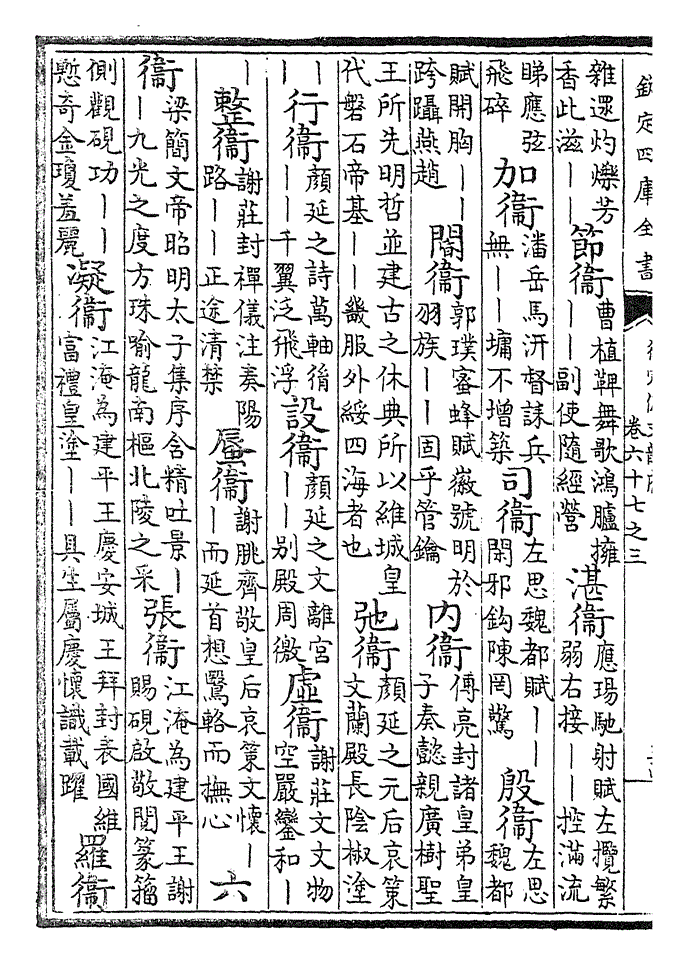 欽定四庫全書
卷六十七之三
雜還灼爍芳香此滋丨丨 節衞 曹植鞞舞歌鴻臚擁丨丨副使隨經營 湛衞 應瑒馳射賦左攬繁弱右接丨丨控滿流
睇應弦飛碎 加衞 潘岳馬汧督誄兵無丨丨墉不增築 司衞 左思魏都賦丨丨閑邪鈎陳罔驚 殷衞 左思魏都
賦開胸丨丨跨躡燕趙 閽衞 郭璞蜜蜂賦嶶號明於羽族丨丨固乎管鑰 内衞 傅亮封諸皇弟皇子奏懿親廣樹聖
王所先明哲並建古之休典所以維城皇代磐石帝基丨丨畿服外綏四海者也 弛衞 顔延之元后哀策文蘭殿長陰椒塗
丨丨 行衞 顔延之詩萬軸胤丨丨千翼泛飛浮 設衞 顔延之文離宮丨丨别殿周徼 虛衞 謝莊文文物空嚴鑾和丨
丨 整衞 謝莊封禪儀注奏陽路丨丨正途清禁 蜃衞 謝朓齊敬皇后哀策文懷丨丨而延首想鷖輅而撫心 六
衞 梁簡文帝昭明太子集序含精吐景丨丨九光之度方珠喻龍南樞北陵之采 張衞 江淹為建平王謝賜硯啟敬閱篆籀
側觀硯功丨丨慙奇金瓊羞麗 凝衞 江淹為建平王慶安城王拜封表國維富禮皇塗丨丨具生屬慶懷識載躍 羅衞